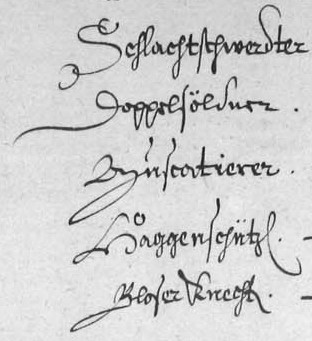 Schlachtschwerdter
Doppelsöldner .
Muscatierer .
Haggenschütz .
Bloser Knecht .